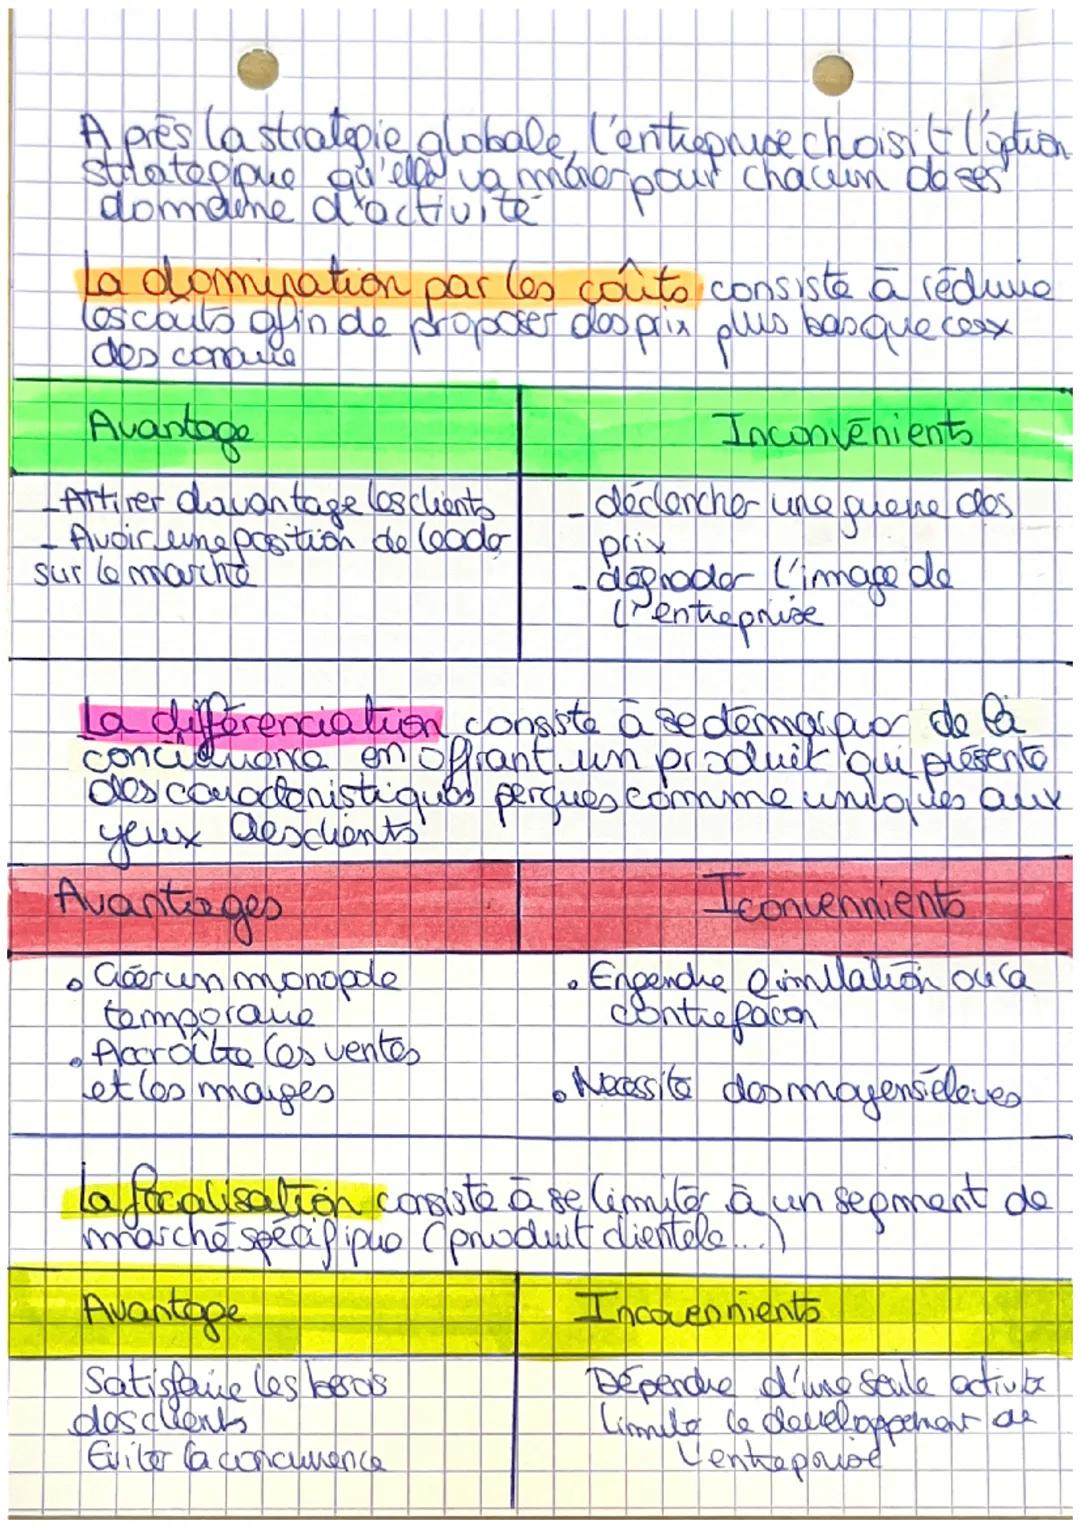 Après la stratégie globale, l'entreprise choisit l'option
stratégique qu'elle va mener pour chacun de ses
domaine d'activité
La domination par les coûts consiste à réduire
les coûts afin de proposer des prix plus bas que ceux
des
Avantage
Inconvénients
- Attirer davantage les clients
- Avoir une position de leader
sur le marché
- déclencher une guerre des
prix
- dégrader l'image de
l'entreprise
La différenciation consiste à se démarquer de la
concurrence en offrant un produit qui présente
des caractéristiques perçues comme uniques aux
yeux des clients
Avantages
Iconvennients
• Créer un monopole
temporaire
• Accroître les ventes
et les marges
• Engendre l'imitation ou la
contrefaçon
• Necessite des moyens élevés
La focalisation consiste à se limiter à un segment de
marché spécifique (produit clientèle...)
Avantage
Incovennients
Satisfaire les besois
des clients
Eviter la concurrence
Dépendre d'une seule activité
Limite le developpement de
l'entreprise